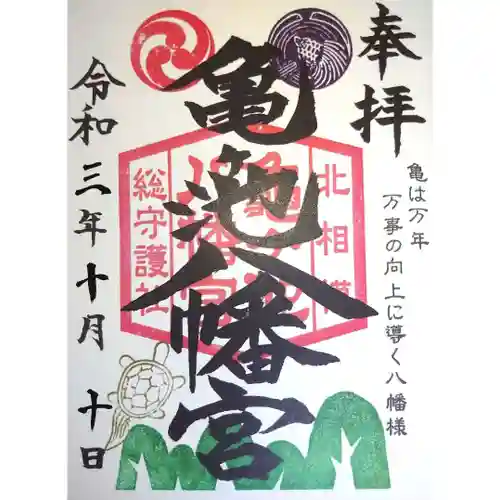 奉拝
亀は万年
万事の向上に導く八幡様
亀池八幡宮
北相模
総守護社
令和三年十月十日